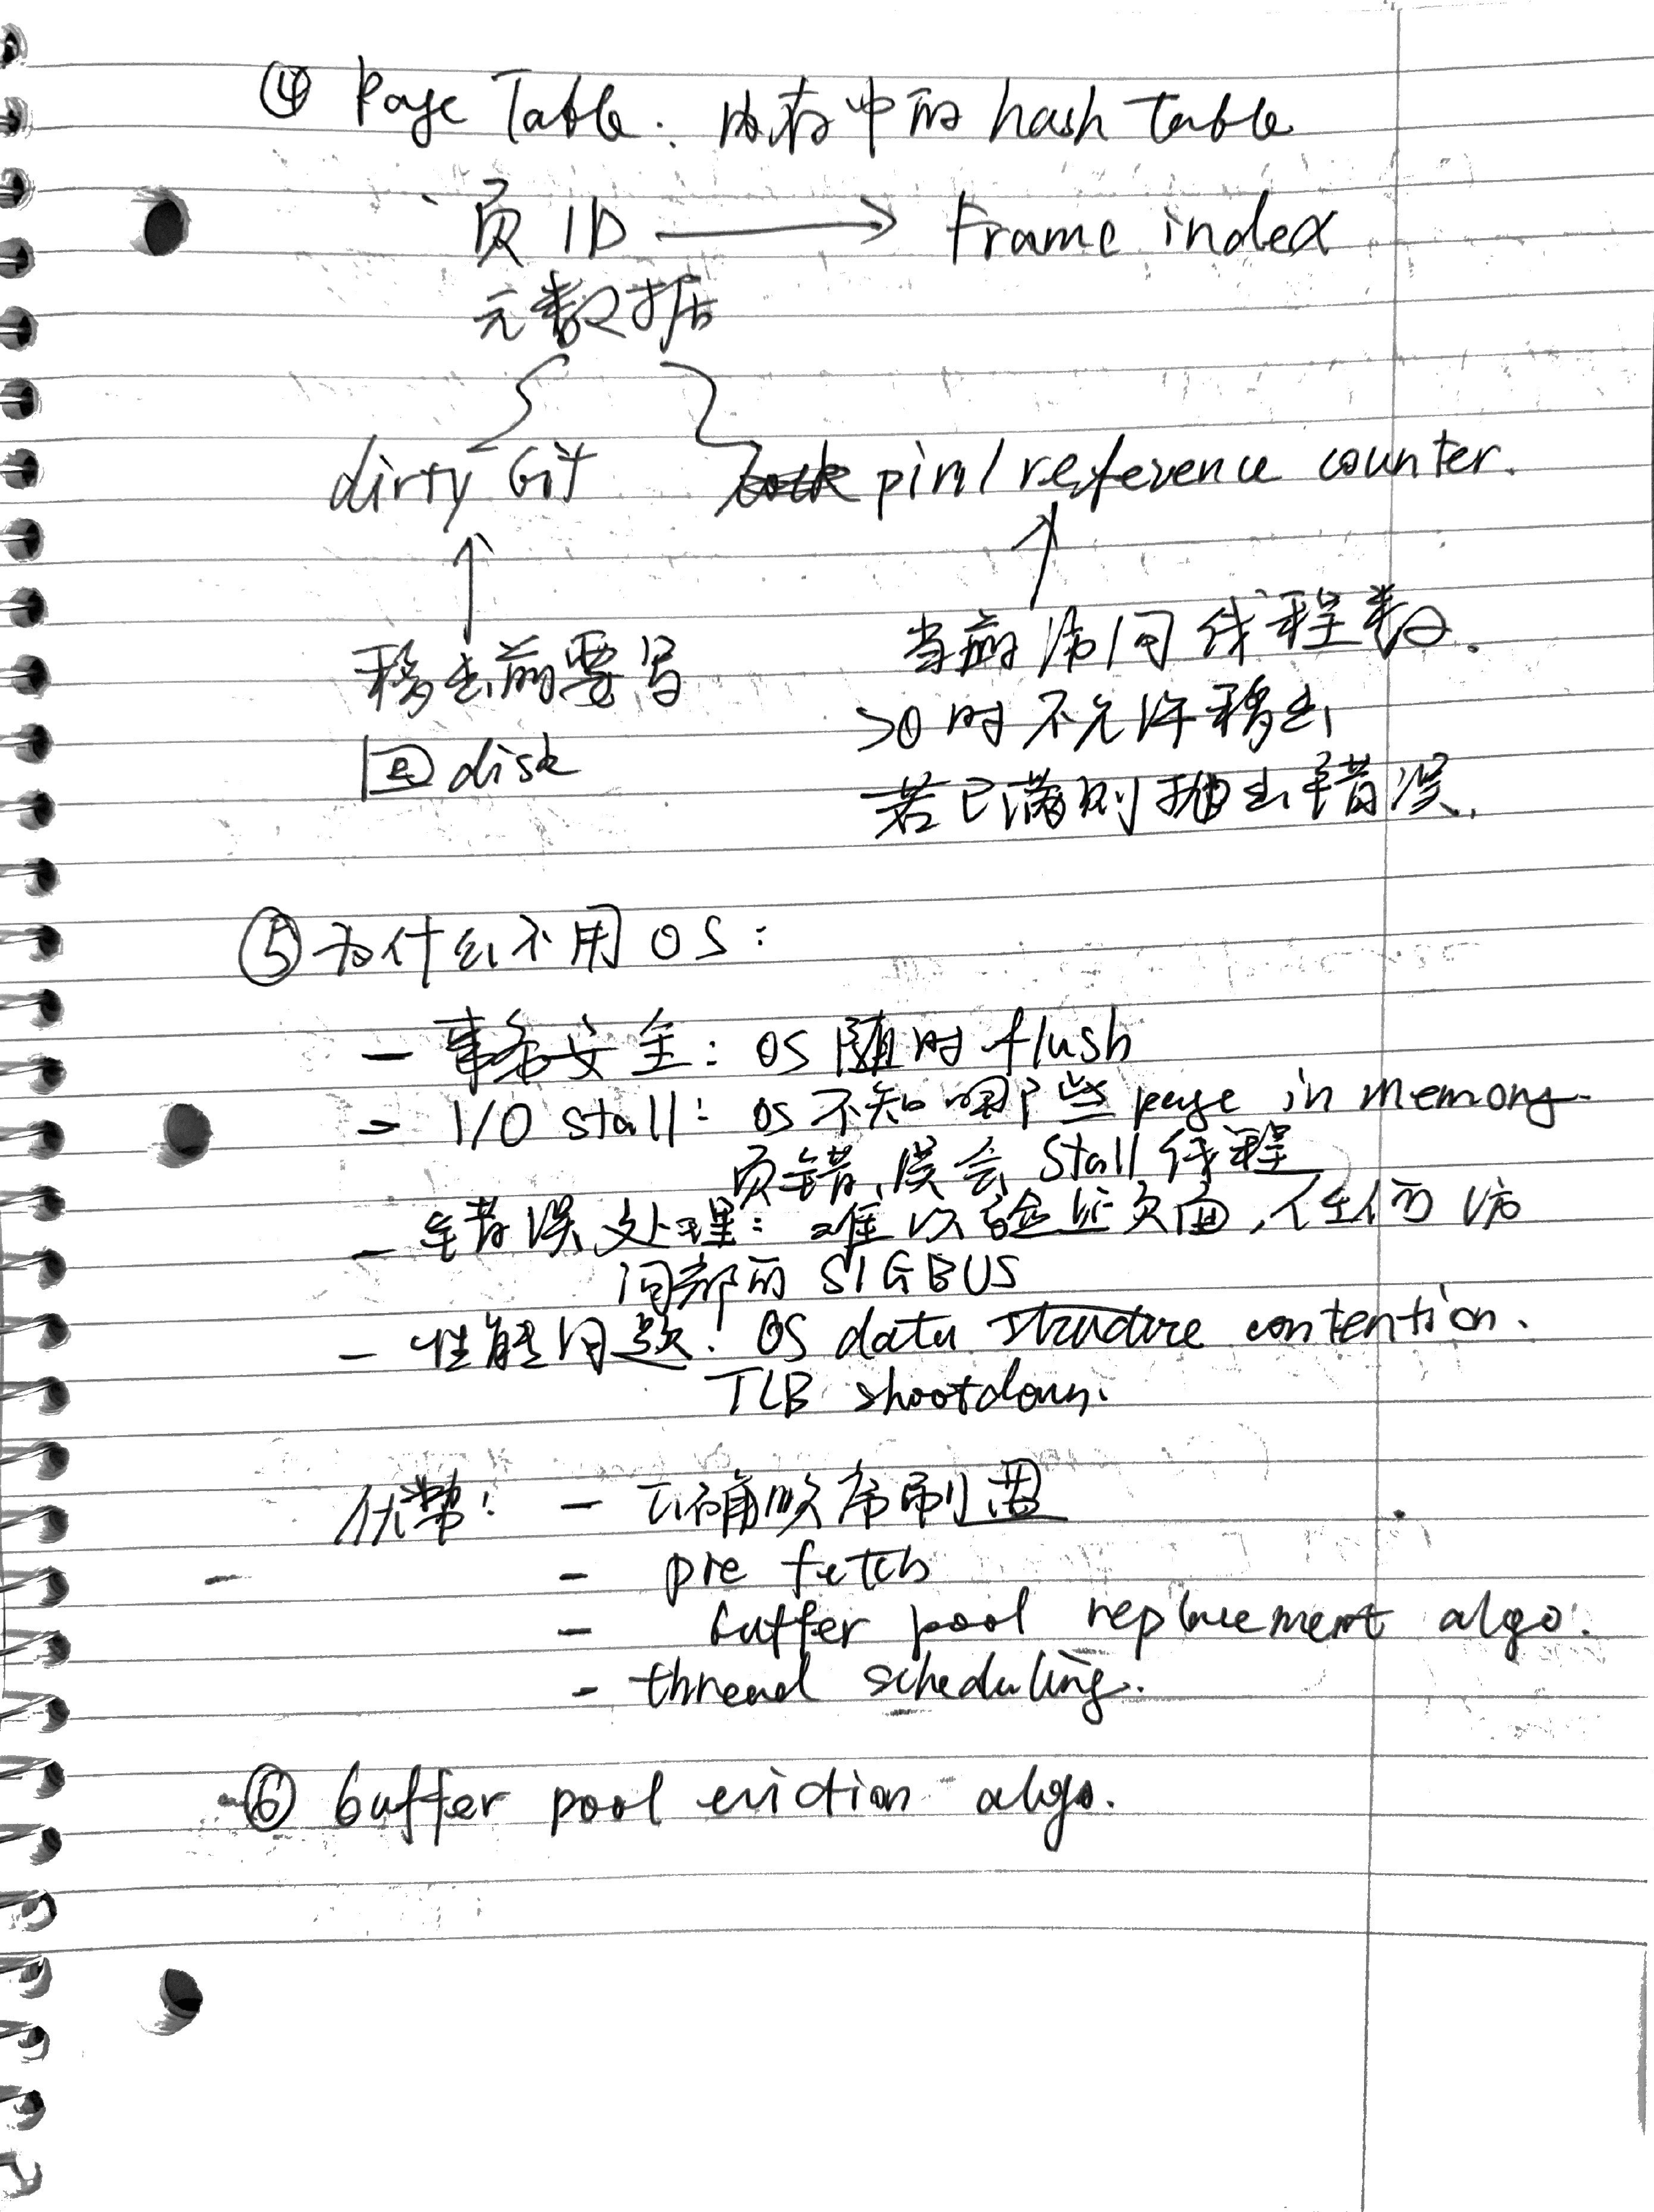 ④ Page Table: 内存中的 hash table
页 ID → Frame index
元数据
dirty bit pin/reference counter.
移出前要写 当前访问线程数.
回 disk >0 时不允许移出
若已满则抛出错误.
⑤ 为什么不用 OS:
- 事务安全: OS 随时 flush
- I/O stall: OS 不知哪些 page in memory.
页错误会 stall 线程
- 错误处理: 难以验证页面, 任何访
问都可 SIGBUS
- 性能问题: OS data structure contention.
TLB shootdown.
优势: - 正确顺序刷盘
- pre fetch
- buffer pool replacement algo.
- thread scheduling.
⑥ buffer pool eviction algo.